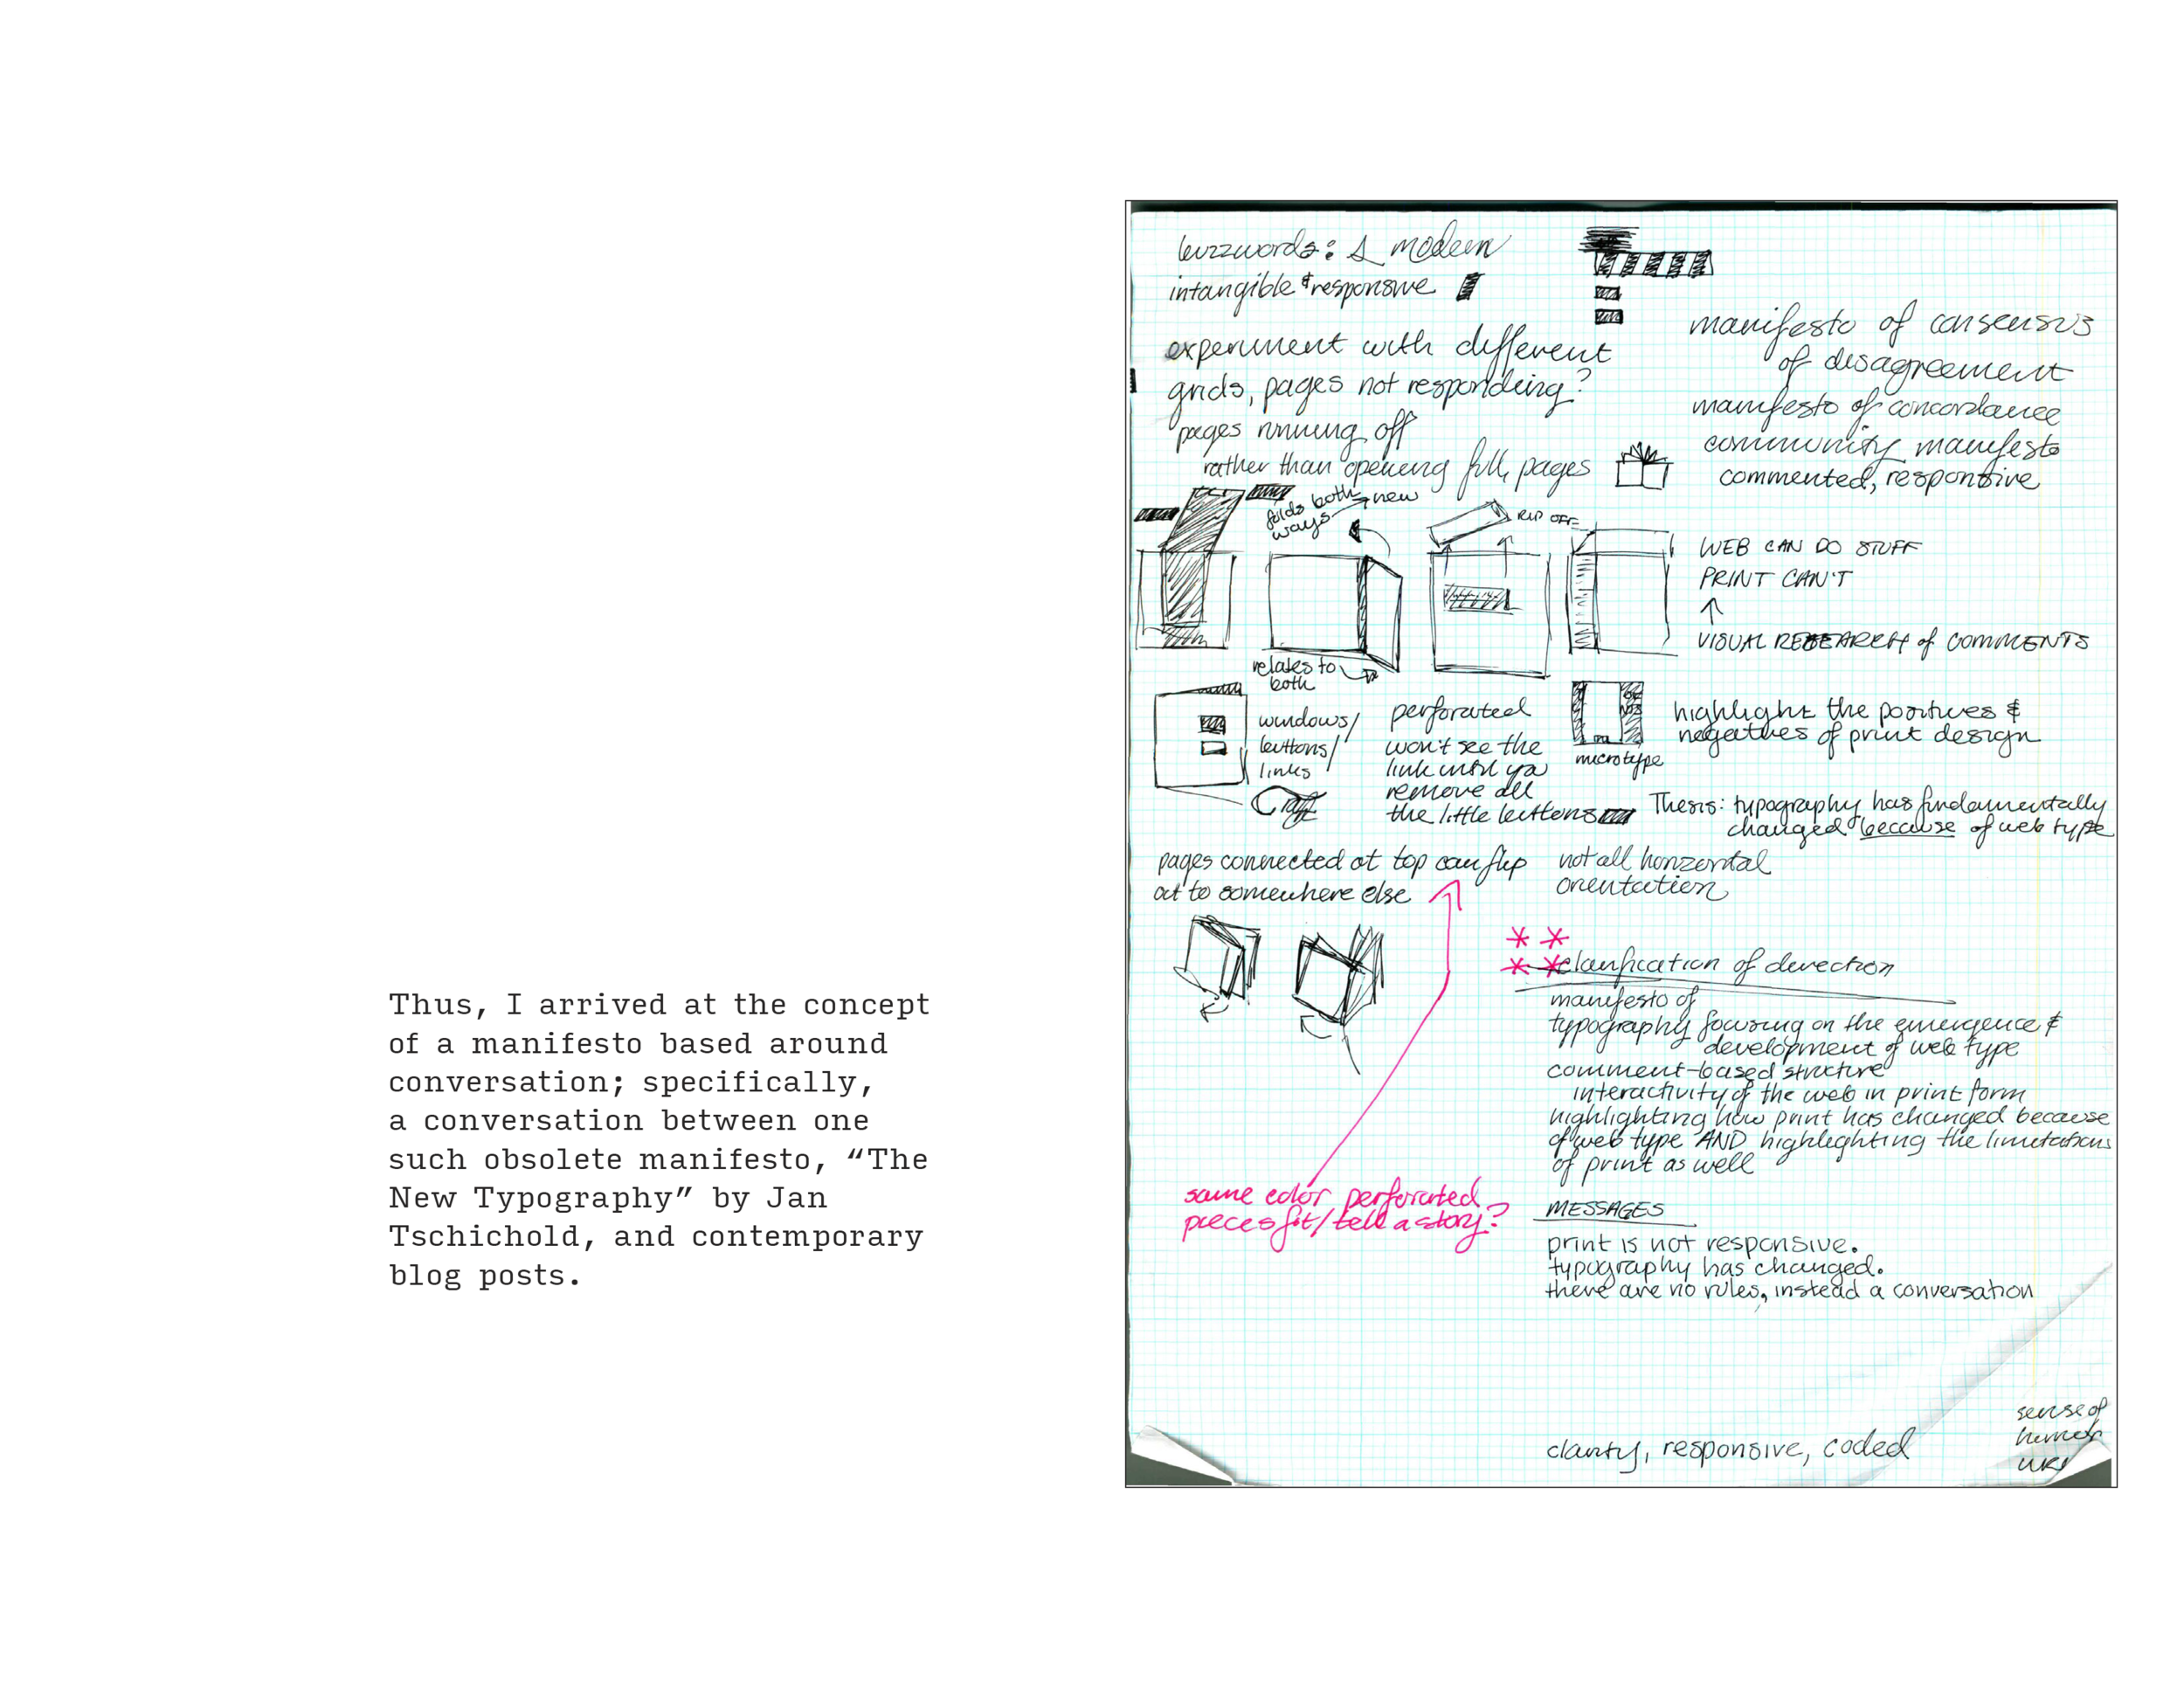 Thus, I arrived at the concept
of a manifesto based around
conversation; specifically,
a conversation between one
such obsolete manifesto, “The
New Typography” by Jan
Tschichold, and contemporary
blog posts.
buzzwords: modern
intangible & responsive
experiment with different
grids, pages not responding?
pages running off
rather than opening full pages
manifesto of consensus
of disagreement
manifesto of concordance
community manifesto
commented, responsive
folds both
ways
new
RIP OFF
relates to
both
WEB CAN DO STUFF
PRINT CAN'T
VISUAL RESEARCH of COMMENTS
windows/
buttons/
links
perforated
won't see the
link until you
remove all
the little buttons
microtype
highlight the positives &
negatives of print design
Thesis: typography has fundamentally
changed because of web type
pages connected at top can flip
out to somewhere else
not all horizontal
orientation
clarification of direction
manifesto of
typography focusing on the emergence &
development of web type
comment-based structure
interactivity of the web in print form
highlighting how print has changed because
of web type AND highlighting the limitations
of print as well
same color perforated
pieces fit/tell a story?
MESSAGES
print is not responsive.
typography has changed.
there are no rules, instead a conversation
clarity, responsive, coded
sense of